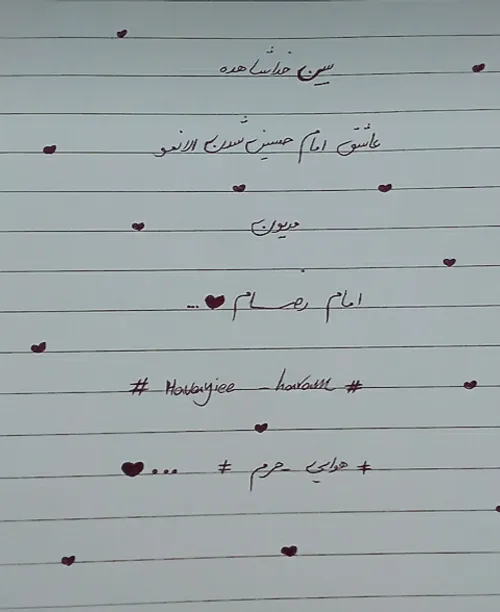 ببین خدا شاهده
عاشق امام حسین شدن الانمو
مدیون
امام رضام ...
# Havayiee _ haram #
# هوایی _ حرم # ...